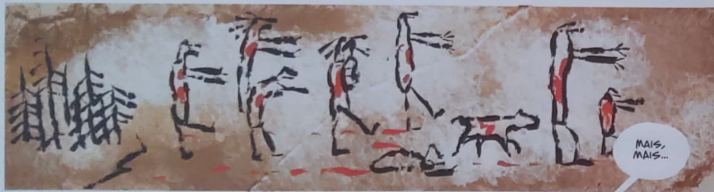 MAIS,
MAIS...